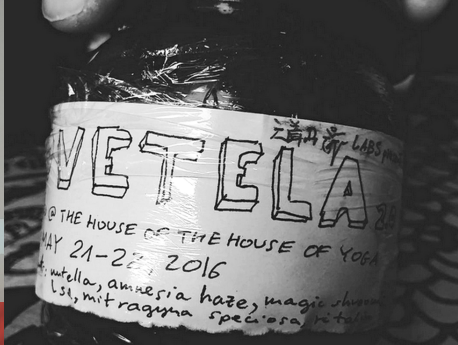 LABS
VETELA
@ THE HOUSE OF THE HOUSE OF YOGA
MAY 21-22, 2016
nutella, amnesia haze, magic
lsd, mitragyna speciosa,